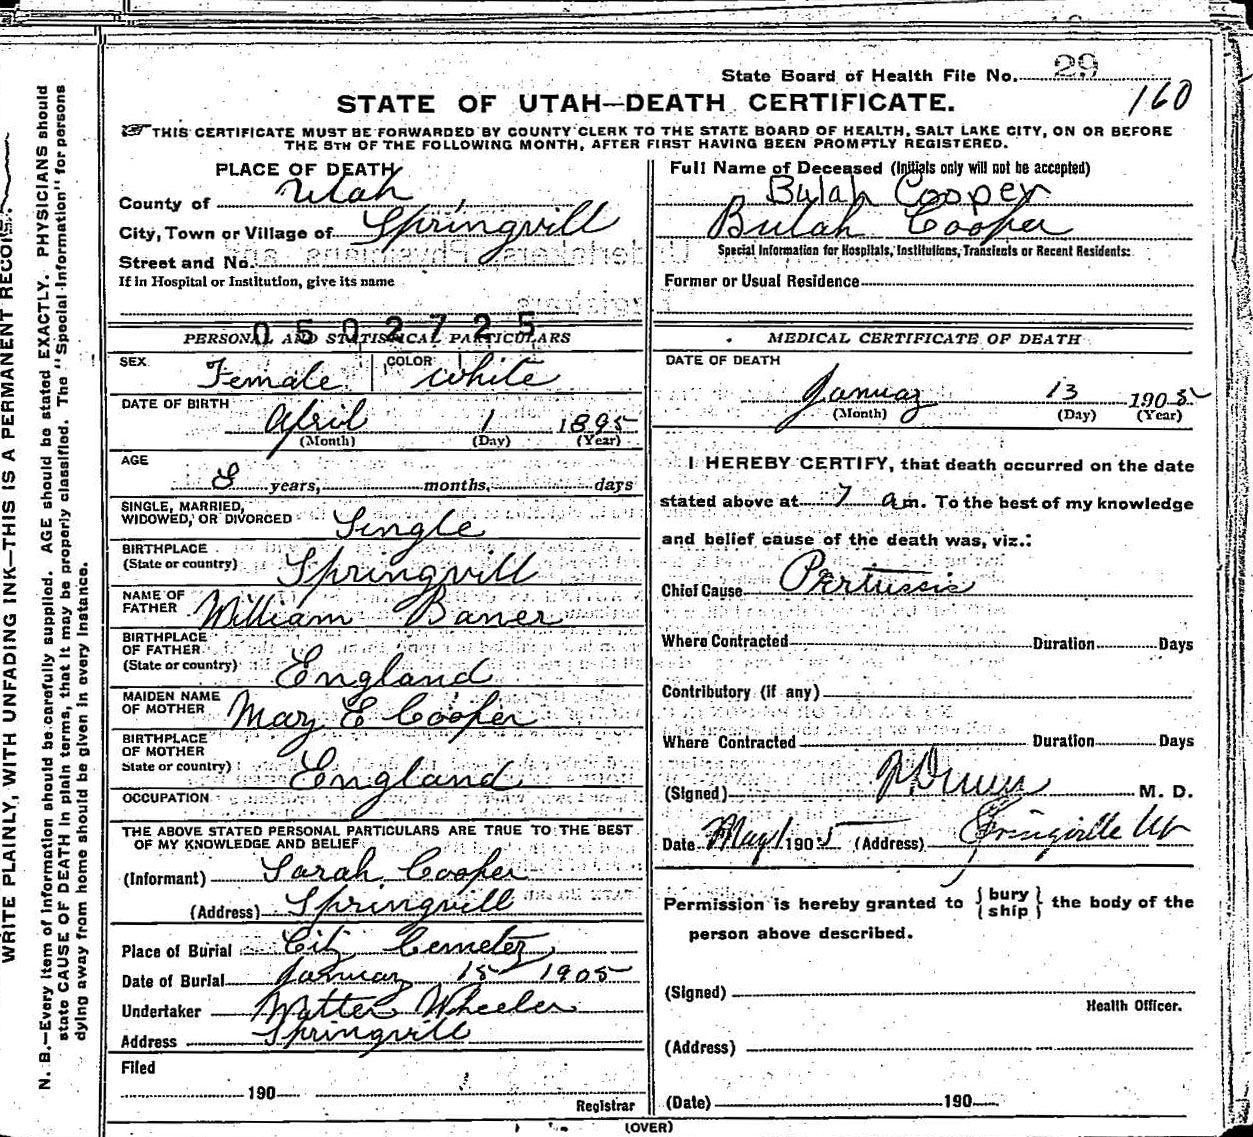 State Board of Health File No. 29
160
STATE OF UTAH—DEATH CERTIFICATE.
THIS CERTIFICATE MUST BE FORWARDED BY COUNTY CLERK TO THE STATE BOARD OF HEALTH, SALT LAKE CITY, ON OR BEFORE
THE 5TH OF THE FOLLOWING MONTH, AFTER FIRST HAVING BEEN PROMPTLY REGISTERED.
WRITE PLAINLY, WITH UNFADING INK—THIS IS A PERMANENT RECORD
N. B.—Every item of information should be carefully supplied. AGE should be stated EXACTLY. PHYSICIANS should
state CAUSE OF DEATH in plain terms, that it may be properly classified. The "Special Information" for persons
dying away from home should be given in every instance.
PLACE OF DEATH
County of Utah
City, Town or Village of Springvill
Street and No.
If in Hospital or Institution, give its name
0502725
PERSONAL AND STATISTICAL PARTICULARS
SEX Female COLOR White
DATE OF BIRTH April 1 1895
(Month) (Day) (Year)
AGE
8 years, months, days
SINGLE, MARRIED,
WIDOWED, OR DIVORCED Single
BIRTHPLACE
(State or country) Springvill
NAME OF
FATHER William Baner
BIRTHPLACE
OF FATHER
(State or country) England
MAIDEN NAME
OF MOTHER Mary E Cooper
BIRTHPLACE
OF MOTHER
State or country) England
OCCUPATION
THE ABOVE STATED PERSONAL PARTICULARS ARE TRUE TO THE BEST
OF MY KNOWLEDGE AND BELIEF
(Informant) Sarah Cooper
(Address) Springvill
Place of Burial City Cemetery
Date of Burial January 15 1905
Undertaker Walter Wheeler
Address Springvill
Filed
190
Registrar
Full Name of Deceased (Initials only will not be accepted)
Bulah Cooper
Bulah Cooper
Special Information for Hospitals, Institutions, Transients or Recent Residents:
Former or Usual Residence
MEDICAL CERTIFICATE OF DEATH
DATE OF DEATH
January 13 1905
(Month) (Day) (Year)
I HEREBY CERTIFY, that death occurred on the date
stated above at 7 a.m. To the best of my knowledge
and belief cause of the death was, viz.:
Chief Cause Pertussis
Where Contracted Duration Days
Contributory (if any)
Where Contracted Duration Days
(Signed) M. D.
Date May 1 1905 (Address) Springville Ut
Permission is hereby granted to {bury ship} the body of the
person above described.
(Signed)
Health Officer.
(Address)
(Date) 190
(OVER)